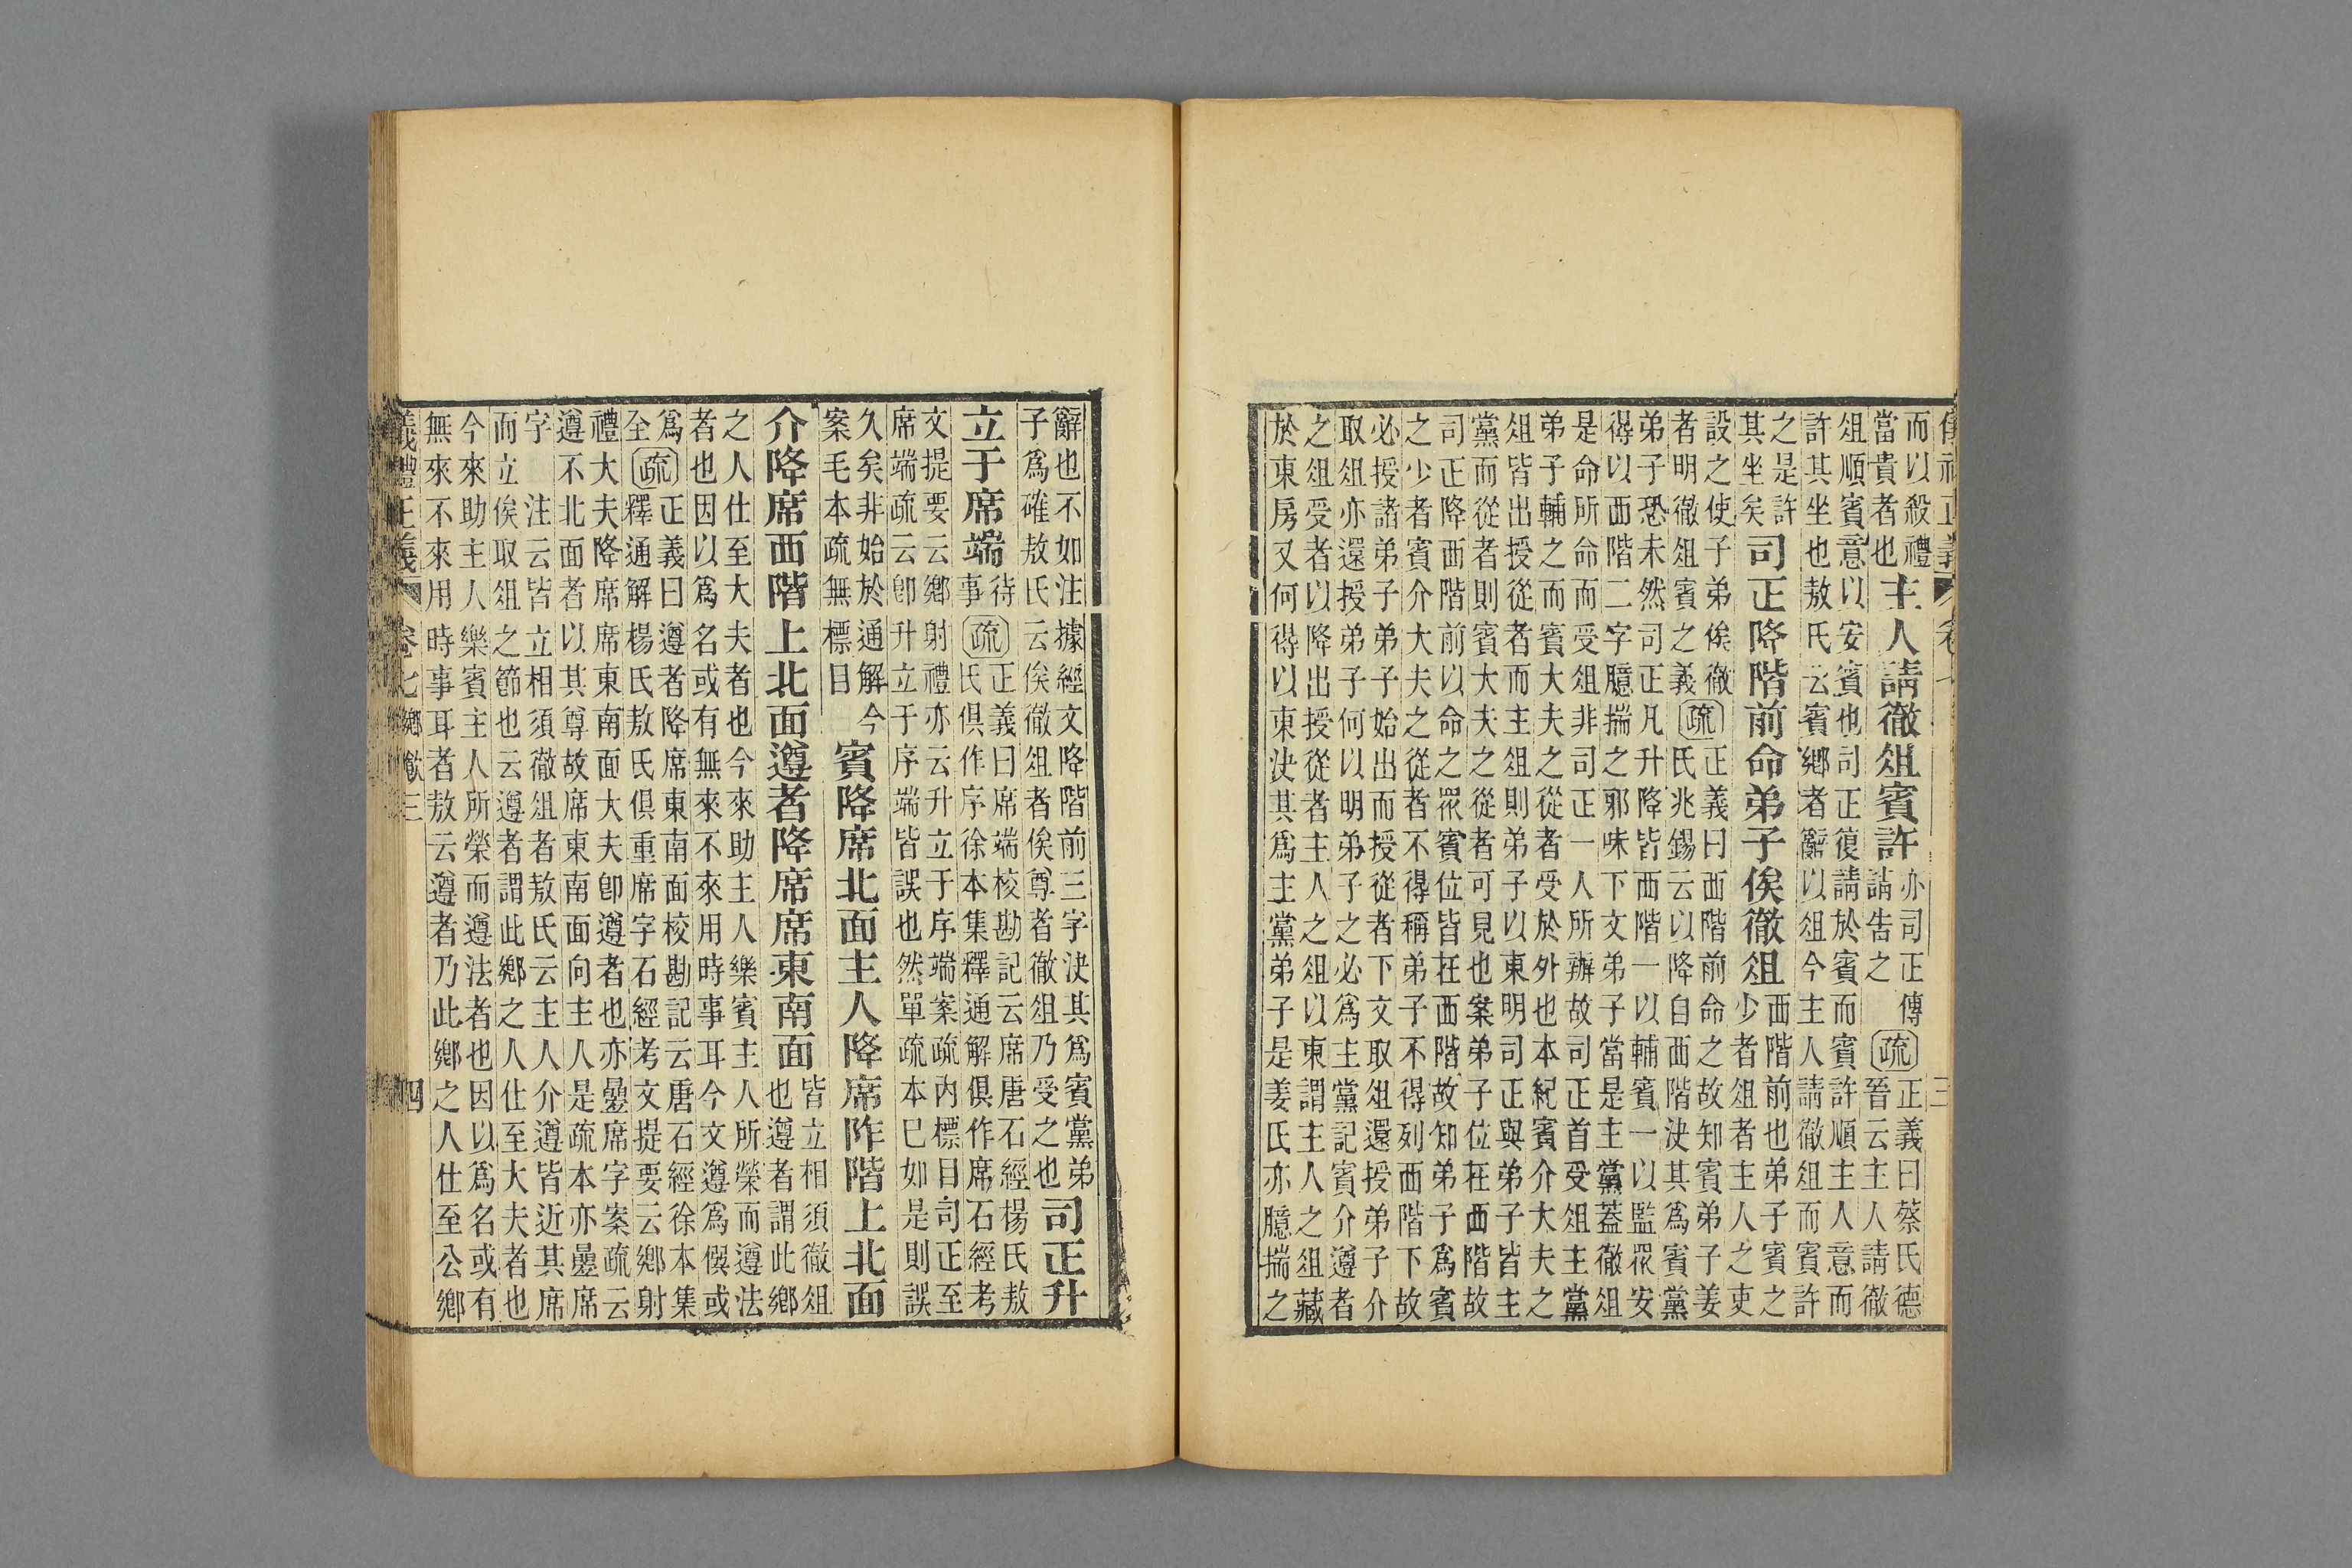 三
而以殺禮
當貴者也
主人請徹俎賓許
亦司正傳
請告之
疏
正義曰蔡氏德
晉云主人請徹
俎順賓意以安賓也司正復請於賓而賓許順主人意而
許其坐也敖氏云賓鄉者辭以俎今主人請徹俎而賓許
之是許
其坐矣
司正降階前命弟子俟徹俎
西階前也弟子賓之
少者俎者主人之吏
設之使子弟俟徹
者明徹俎賓之義
疏
正義曰西階前命之故知賓弟子姜
氏兆錫云以降自西階決其爲賓黨
弟子恐未然司正凡升降皆西階一以輔賓一以監眾安
得以西階二字臆揣之邪味下文弟子當是主黨蓋徹俎
是命所命而受俎非司正一人所辦故司正首受俎主黨
弟子輔之而賓大夫之從者受於外也本紀賓介大夫之
俎皆出授從者而主俎則弟子以東明司正與弟子皆主
黨而從者則賓大夫之從者可見也案弟子位在西階故
司正降西階前以命之眾賓位皆在西階故知弟子爲賓
之少者賓介大夫之從者不得稱弟子不得列西階下故
必授諸弟子弟子始出而授從者下文取俎還授弟子介
取俎亦還授弟子何以明弟子之必爲主黨記賓介遵者
之俎受者以降出授從者主人之俎以東謂主人之俎藏
於東房又何得以東決其爲主黨弟子是姜氏亦臆揣之
辭也不如注據經文降階前三字決其爲賓黨弟
子爲確敖氏云俟徹俎者俟尊者徹俎乃受之也
司正升
立于席端
待
事
疏
正義曰席端校勘記云席唐石經楊氏敖
氏俱作序徐本集釋通解俱作席石經考
文提要云鄉射禮亦云升立于序端案疏內標目司正至
席端疏云卽升立于序端皆誤也然單疏本巳如是則誤
久矣非始於通解今
案毛本疏無標目
賓降席北面主人降席阼階上北面
介降席西階上北面遵者降席席東南面
皆立相須徹俎
也遵者謂此鄉
之人仕至大夫者也今來助主人樂賓主人所榮而遵法
者也因以爲名或有無來不來用時事耳今文遵爲僎或
爲
全
疏
正義曰遵者降席東南面校勘記云唐石經徐本集
釋通解楊氏敖氏俱重席字石經考文提要云鄉射
禮大夫降席席東南面大夫卽遵者也亦疊席字案疏云
遵不北面者以其尊故席東南面向主人是疏本亦疊席
字　注云皆立相須徹俎者敖氏云主人介遵皆近其席
而立俟取俎之節也云遵者謂此鄉之人仕至大夫者也
今來助主人樂賓主人所榮而遵法者也因以爲名或有
無來不來用時事耳者敖云遵者乃此鄉之人仕至公鄉
儀禮正義　卷七鄉飲三　四